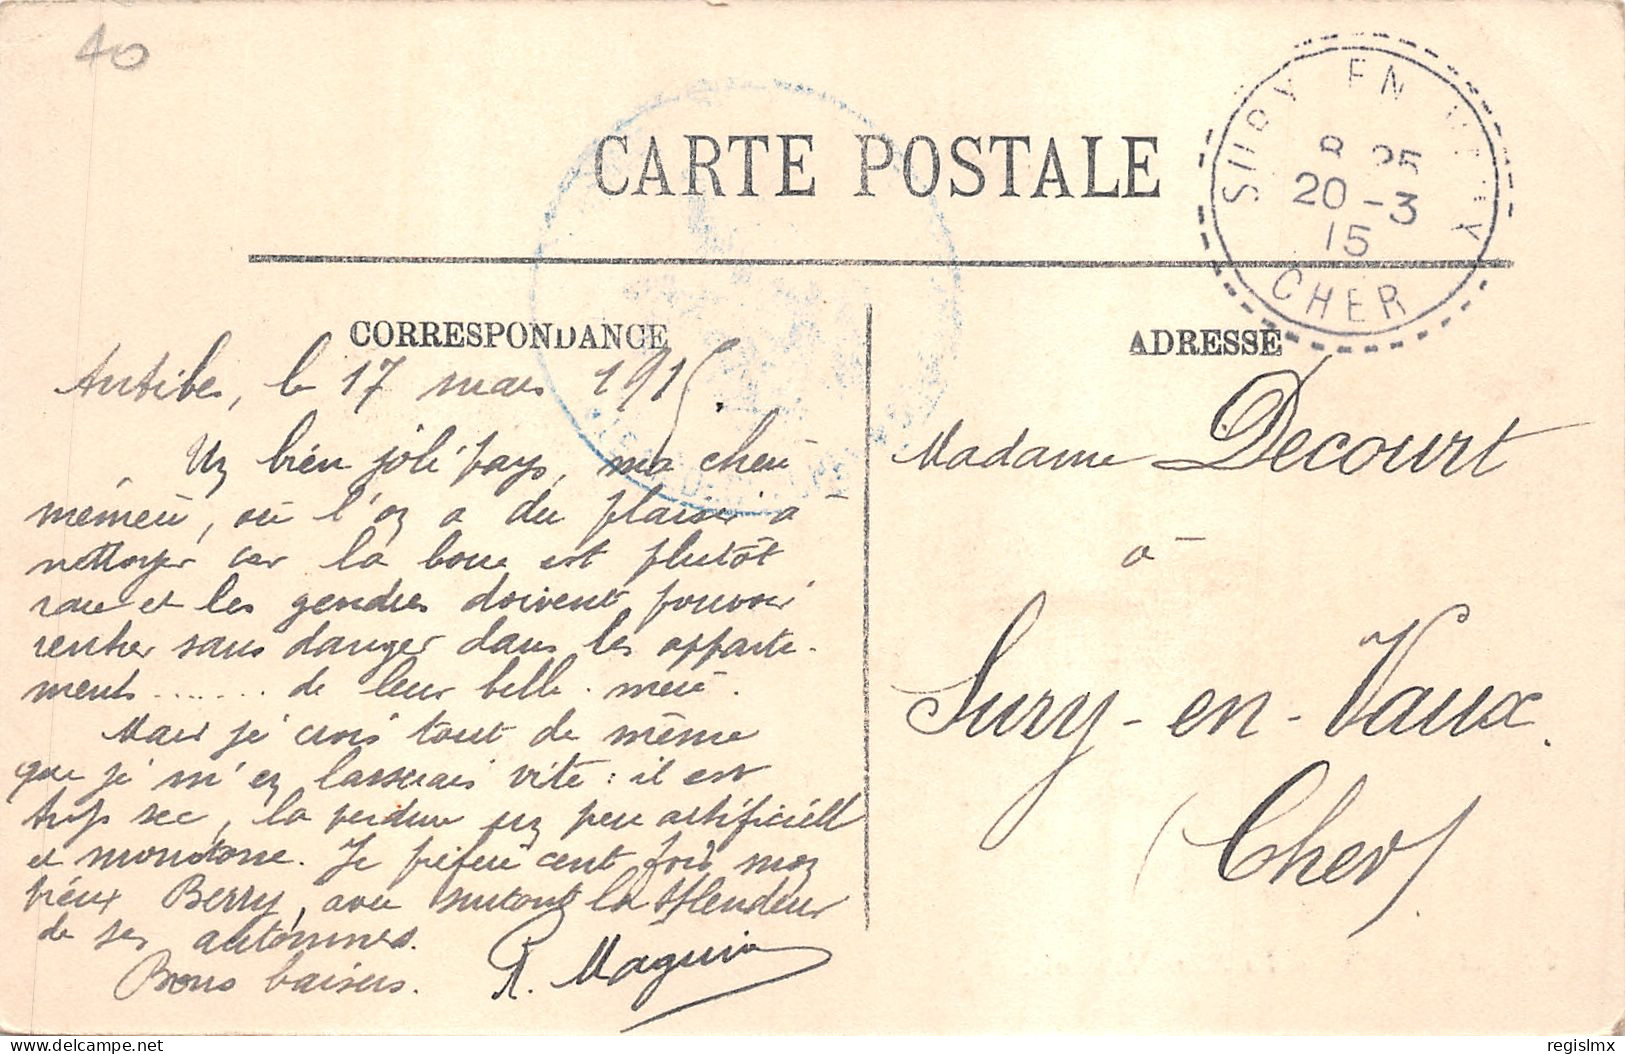 40
CARTE POSTALE
SURY EN VAUX
8 25
20 -3
15
CHER
CORRESPONDANCE
Antibes, le 17 mars 1915.
Un bien joli pays, ma chère
mémère, où l'on a du plaisir à
nettoyer car la boue est plutôt
rare et les gendres doivent pouvoir
rentrer sans danger dans les apparte-
ments ....... de leur belle-mère.
Mais je crois tout de même
que je m'en lasserais vite : il est
trop sec, la verdure un peu artificielle
et monotone. Je préfère cent fois mon
vieux Berry, avec surtout la splendeur
de ses automnes.
Bons baisers. R. Maguin
ADRESSE
Madame Decourt
à
Sury-en-Vaux.
(Cher)
delcampe.net
regislmx